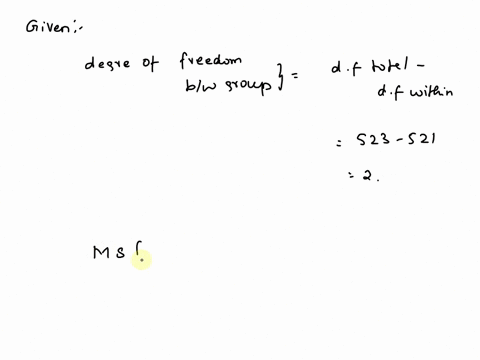 Given:-
degre of freedom
b/w group } = d.f totel -
d.f within
= 523 - 521
= 2.
M S (